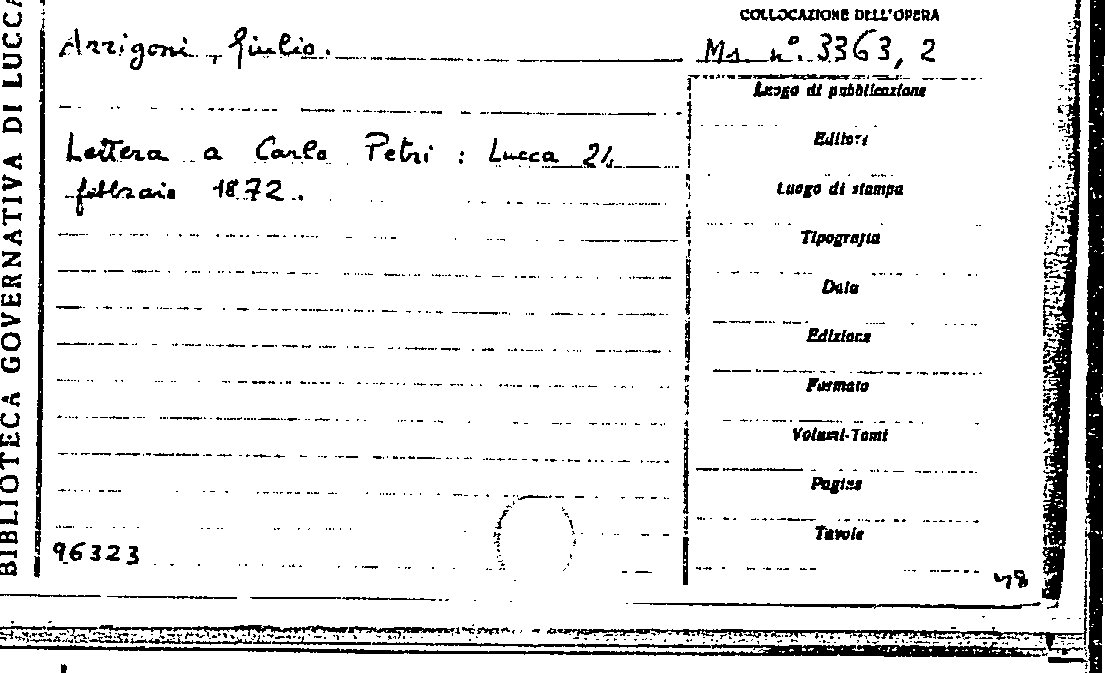 BIBLIOTECA GOVERNATIVA DI LUCCA
COLLOCAZIONE DELL'OPERA
Arrigoni, Giulio.
Ms. n°. 3363, 2
Lettera a Carlo Petri : Lucca
febbraio 1872.
Luogo di pubblicazione
Editore
Luogo di stampa
Tipografia
Data
Edizione
Formato
Volumi-Tomi
Pagine
Tavole
96323